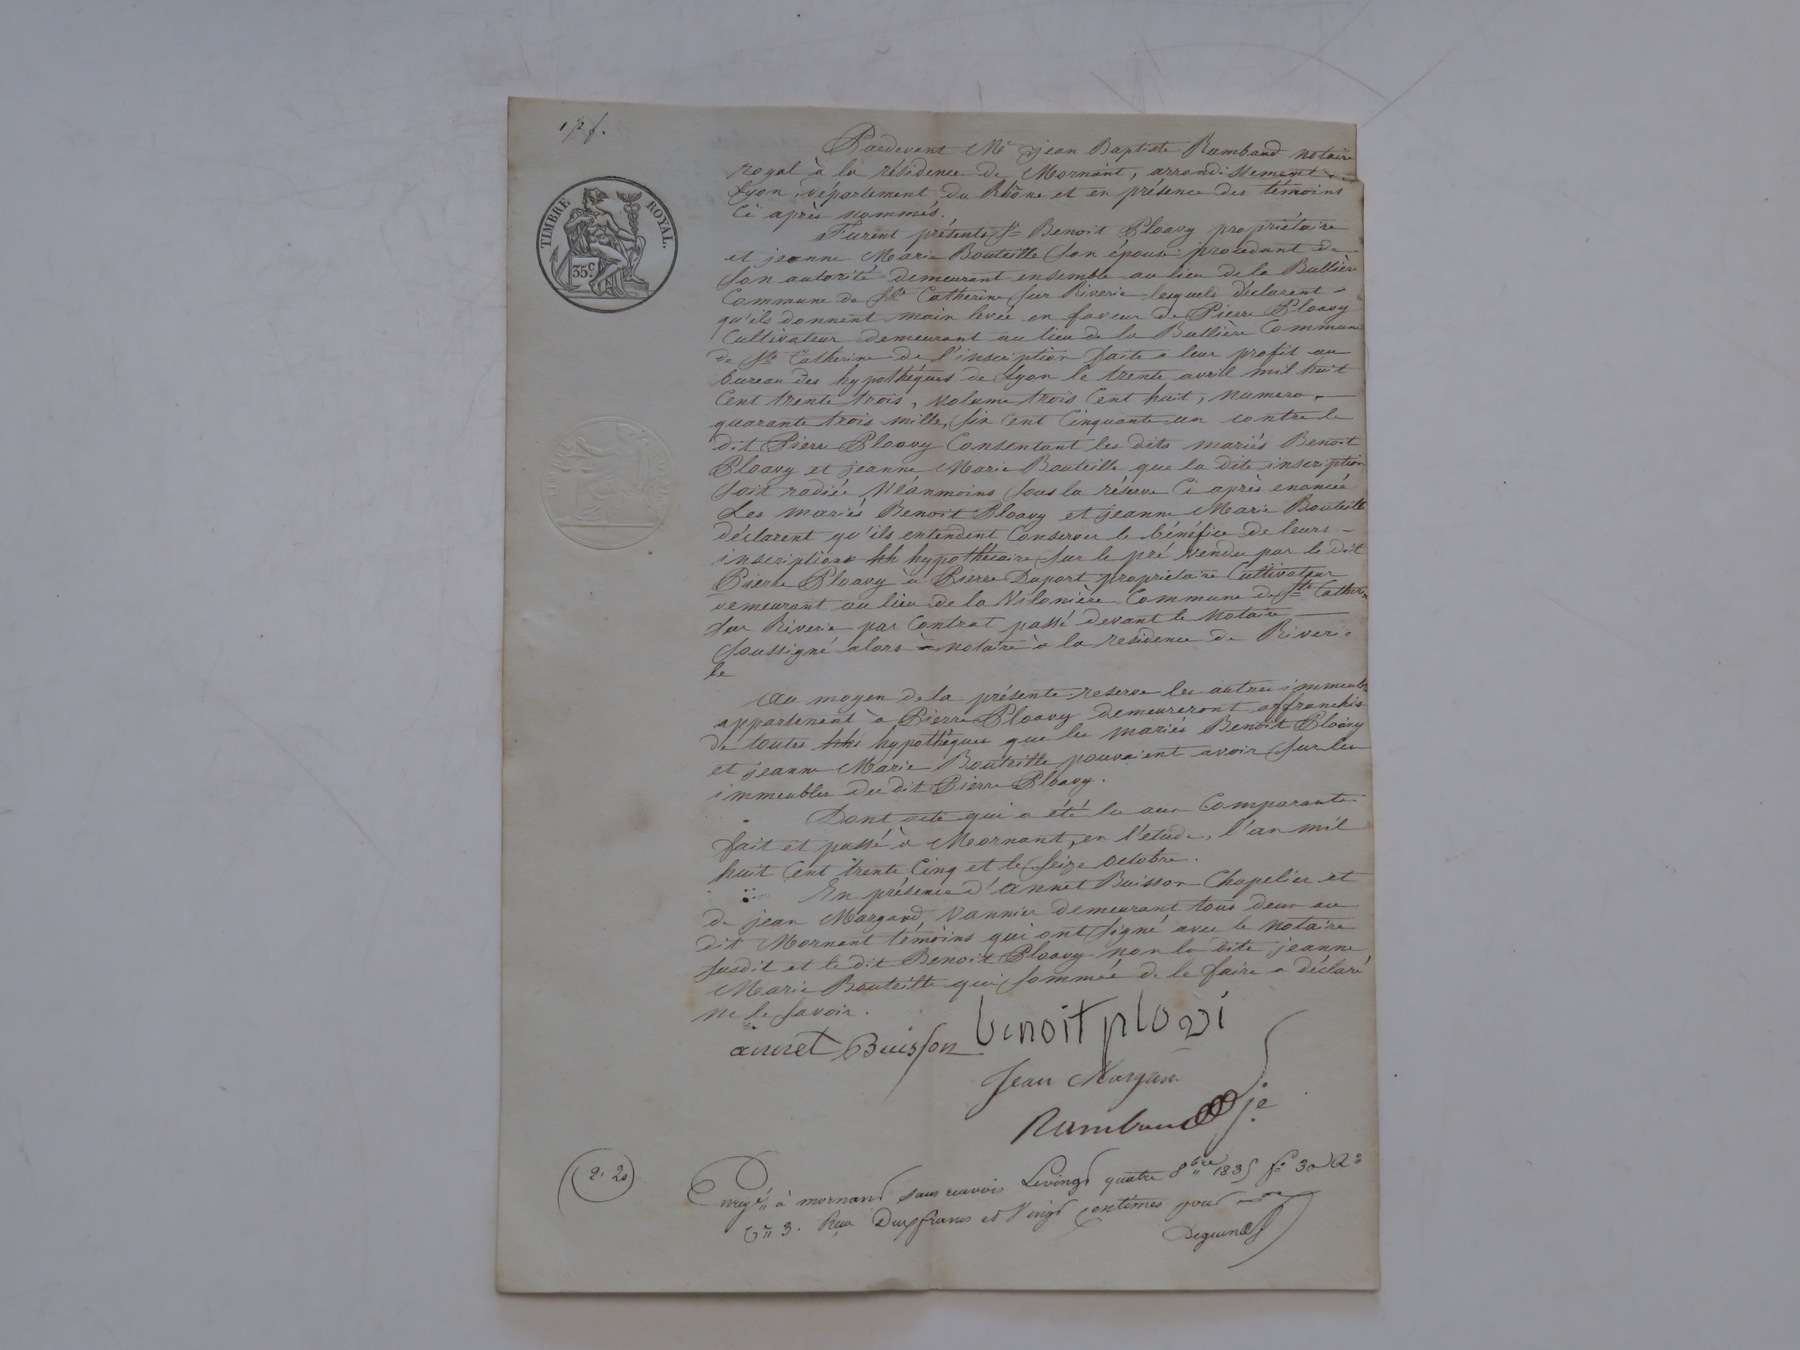 TIMBRE ROYAL.
35.c
Pardevant Me jean Baptiste Rambaud notaire
royal à la résidence de Mornant, arrondissement
Lyon, département du Rhône et en présence des témoins
Ci après nommés.
Furent présents Sr Benoit Ploavy propriétaire
et jeanne Marie Bouteille son épouse procedant de
son autorité demeurant ensemble au lieu de la Bullière
Commune de Ste Catherine sur Riverie lesquels déclarent
qu'ils donnent main levée en faveur de Pierre Ploavy
Cultivateur demeurant au lieu de la Bullière Commune
de Ste Catherine de l'inscription faite a leur profit au
bureau des hypothèques de Lyon le trente avril mil huit
Cent trente trois, volume trois Cent huit, numero
quarante trois mille, six Cent Cinquante un contre le
dit Pierre Ploavy Consentant les dits mariés Benoit
Ploavy et jeanne Marie Bouteille que la dite inscription
soit radiée Néanmoins sous la réserve Ci après enoncée
Les mariés Benoit Ploavy et jeanne Marie Bouteille
déclarent qu'ils entendent Conserver le bénéfice de leurs
inscription hypothécaire sur le pré vendu par le dit
Pierre Ploavy à Pierre Duport propriétaire Cultivateur
demeurant au lieu de la Vilonière Commune de Ste Catherine
sur Riverie par Contrat passé devant le notaire
soussigné alors notaire à la residence de Riverie
le
Au moyen de la présente reserve les autres immeubles
appartenant à Pierre Ploavy demeureront affranchis
de toutes hypothèques que les mariés Benoit Ploavy
et jeanne Marie Bouteille pouvaient avoir sur les
immeubles du dit Pierre Ploavy.
Dont acte qui a été lu aux Comparants
fait et passé à Mornant, en l'étude, l'an mil
huit Cent trente Cinq et le seize octobre.
En présence d'annet Buisson Chapelier et
de jean Margand, Vannier demeurant tous deux au
dit Mornant témoins qui ont signé avec le notaire
susdit et le dit Benoit Ploavy non la dite jeanne
Marie Bouteille qui sommée de le faire a déclaré
ne le savoir.
annet Buisson benoit plovi
Jean Margan
Rambaud
2. 20
à mornant sans renvois Levingt quatre 8bre 1835 fo 30
3. Deux francs et Vingt Centimes pour